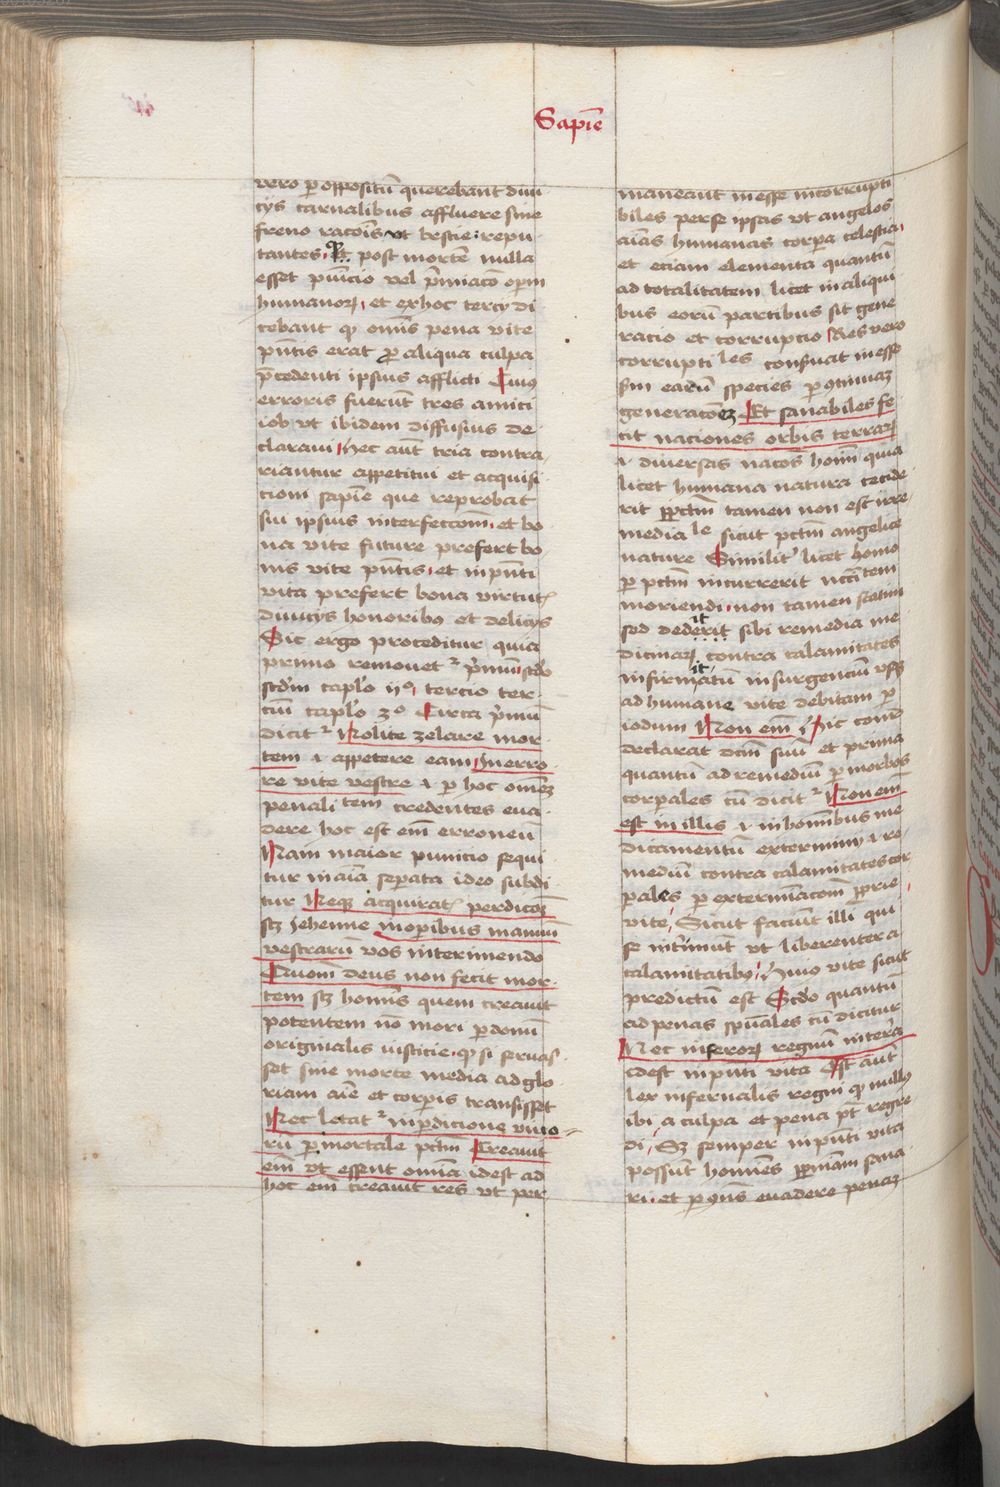 Sapīe
vero p oppositū querebant diui
cijs carnalibus affluere sine
freno racōis vt bestie repu
tantes Et post mortē nulla
esset pūicio vel p̄miacō operū
humanoꝝ et ex hoc tercij di
cebant qꝫ omīs pena vite
pn̄tis erat p aliqua culpa
p̄cedenti ipsius afflicti Cuiꝰ
erroris fuerūt tres amici
iob vt ibidem diffusius de
claraui hec aūt tria contra
riantur appetitui et acquisi
cioni sapīe que reprobat
sui ipsius interfeccōem et bo
na vite future prefert bo
nis vite pn̄tis et in pn̄ti
vita prefert bona virtutꝭ
diuicijs honoribꝰ et delicijs
Sic ergo proceditur quia
primo remouet᷑ p̄mū scd̄o
scd̄m capl̓o ijº tercio ter
ciū capl̓o 3º Circa p̄mū
dicit᷑ Nolite zelare mor
tem i appetere eam in erro
re vite vestre i p hoc omēꝫ
penalitem credentes eua
dere hoc est em̄ erroneū
Nam maior punicio sequi
tur in aīa sepata ideo subdi
tur Neqꝫ acquiratꝭ perdicōeꝫ
sꝫ jehenne in operibus manuū
vestrarū vos interimendo
Quoniā deus non fecit mor
tem sꝫ homīs quem creauit
potentem nō mori p donū
originalis iusticie qꝫ si seruas
set sine morte media ad glo
riam aīe et corpis transisset
Nec letat᷑ in perdicione viuo
rū p mortale pctm̄ Creauit
em̄ vt essent omīa idest ad
hoc em̄ creauit res vt per
maneant in esse incorrupti
biles per se ipsas vt angelos
aīas humanas corpa celestia
et eciam elementa quantū
ad totalitatem licet in aliqui
bus eorū partibus sit gene
racio et corrupcio Res vero
corruptiles conseruat in esse
sm̄ earū species p 9tinuaꝫ
generacōeꝫ Et sanabiles fe
cit naciones orbis terraꝝ
i diuersas nacōes hoīm quia
licet humana natura cecide
rit p pctm̄ tamen non est irre
mediale sicut pctm̄ angelice
nature Similit̓ licet homo
p pctm̄ incurrerit nccītem
moriendi non tamen statim
sed dederit sibi remedia me
dicinaꝝ contra calamitates
infirmitatū insurgenciū vsqꝫ
ad humane vite debitam p
iodum Non em̄ Hic cond
declarat dcm̄ suū et prima
quantū ad remediū p morbos
corporales cū dicit᷑ Non em̄
est in illis i in hoīnibus me
dicamentū exterminij i re
mediū contra calamitates cor
pales p exterminacōem p̄prie
vite Sicut faciūt illi qui
se intimūt vt liberentur a
calamitatibꝰ huiꝰ vite sicut
predictū est Scd̄o quantū
ad penas spūales cū dicitur
Nec inferoꝝ regnū in terra
idest in pn̄ti vita Est aūt
lex infernalis regni qꝫ nullꝰ
ibi a culpa et pena pt̄ regre
di Sꝫ semper in pn̄ti vita
possūt homīes p pnīam sana
ri et p 9ns̄ euadere penaꝫ